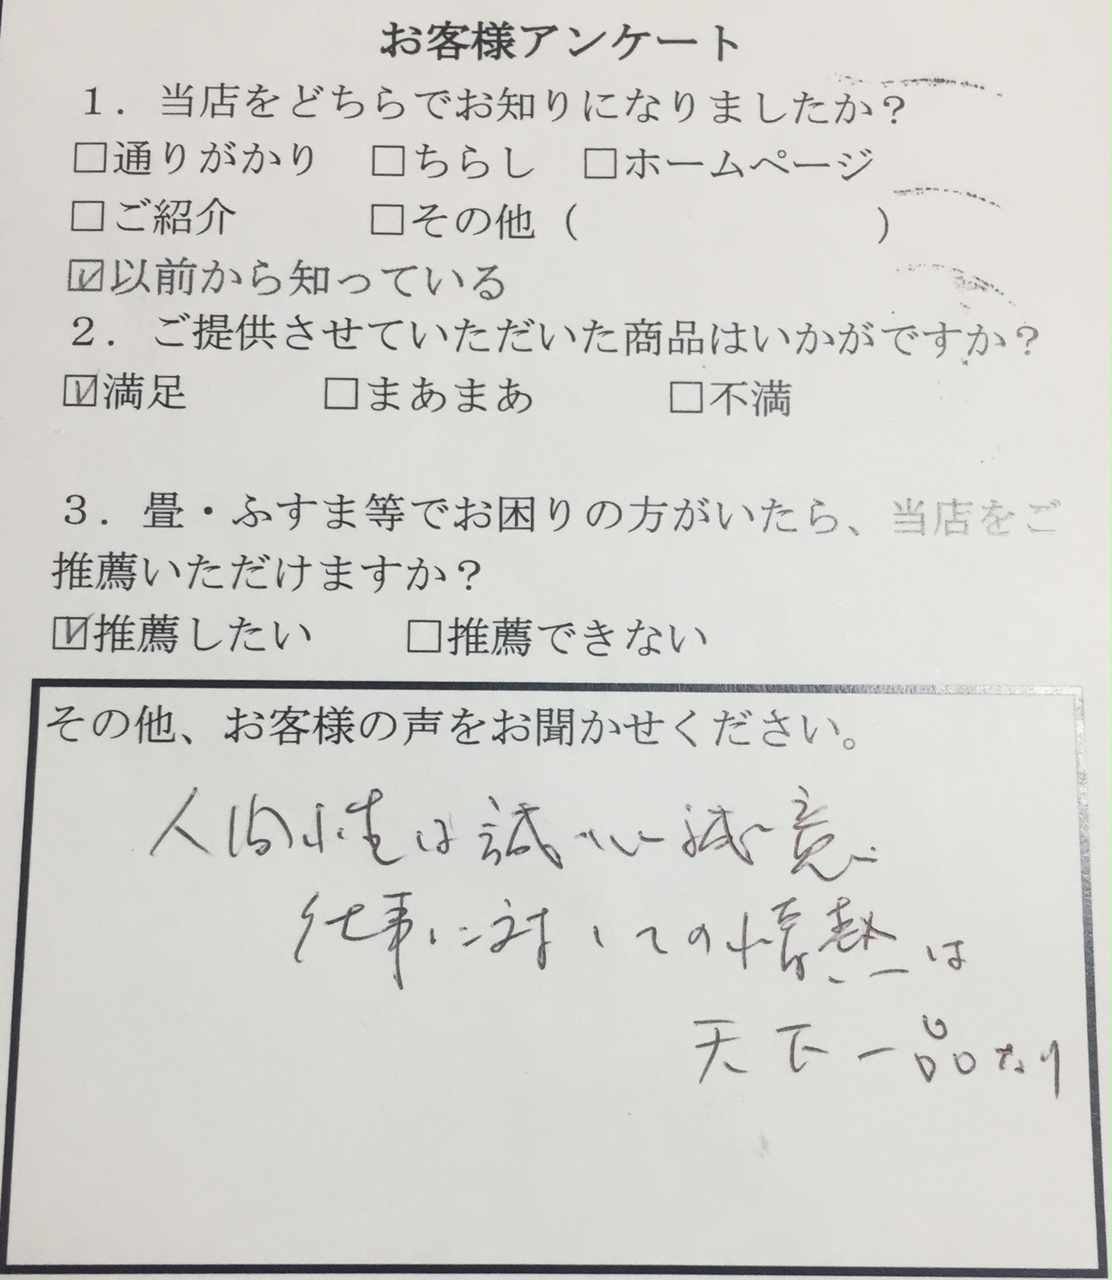 お客様アンケート
１．当店をどちらでお知りになりましたか？
□通りがかり　□ちらし　□ホームページ
□ご紹介　□その他（　　　　　　　）
☑以前から知っている
２．ご提供させていただいた商品はいかがですか？
☑満足　□まあまあ　□不満
３．畳・ふすま等でお困りの方がいたら、当店をご
推薦いただけますか？
☑推薦したい　□推薦できない
その他、お客様の声をお聞かせください。
人間性は誠心誠意
仕事に対しての情熱は
天下一品なり